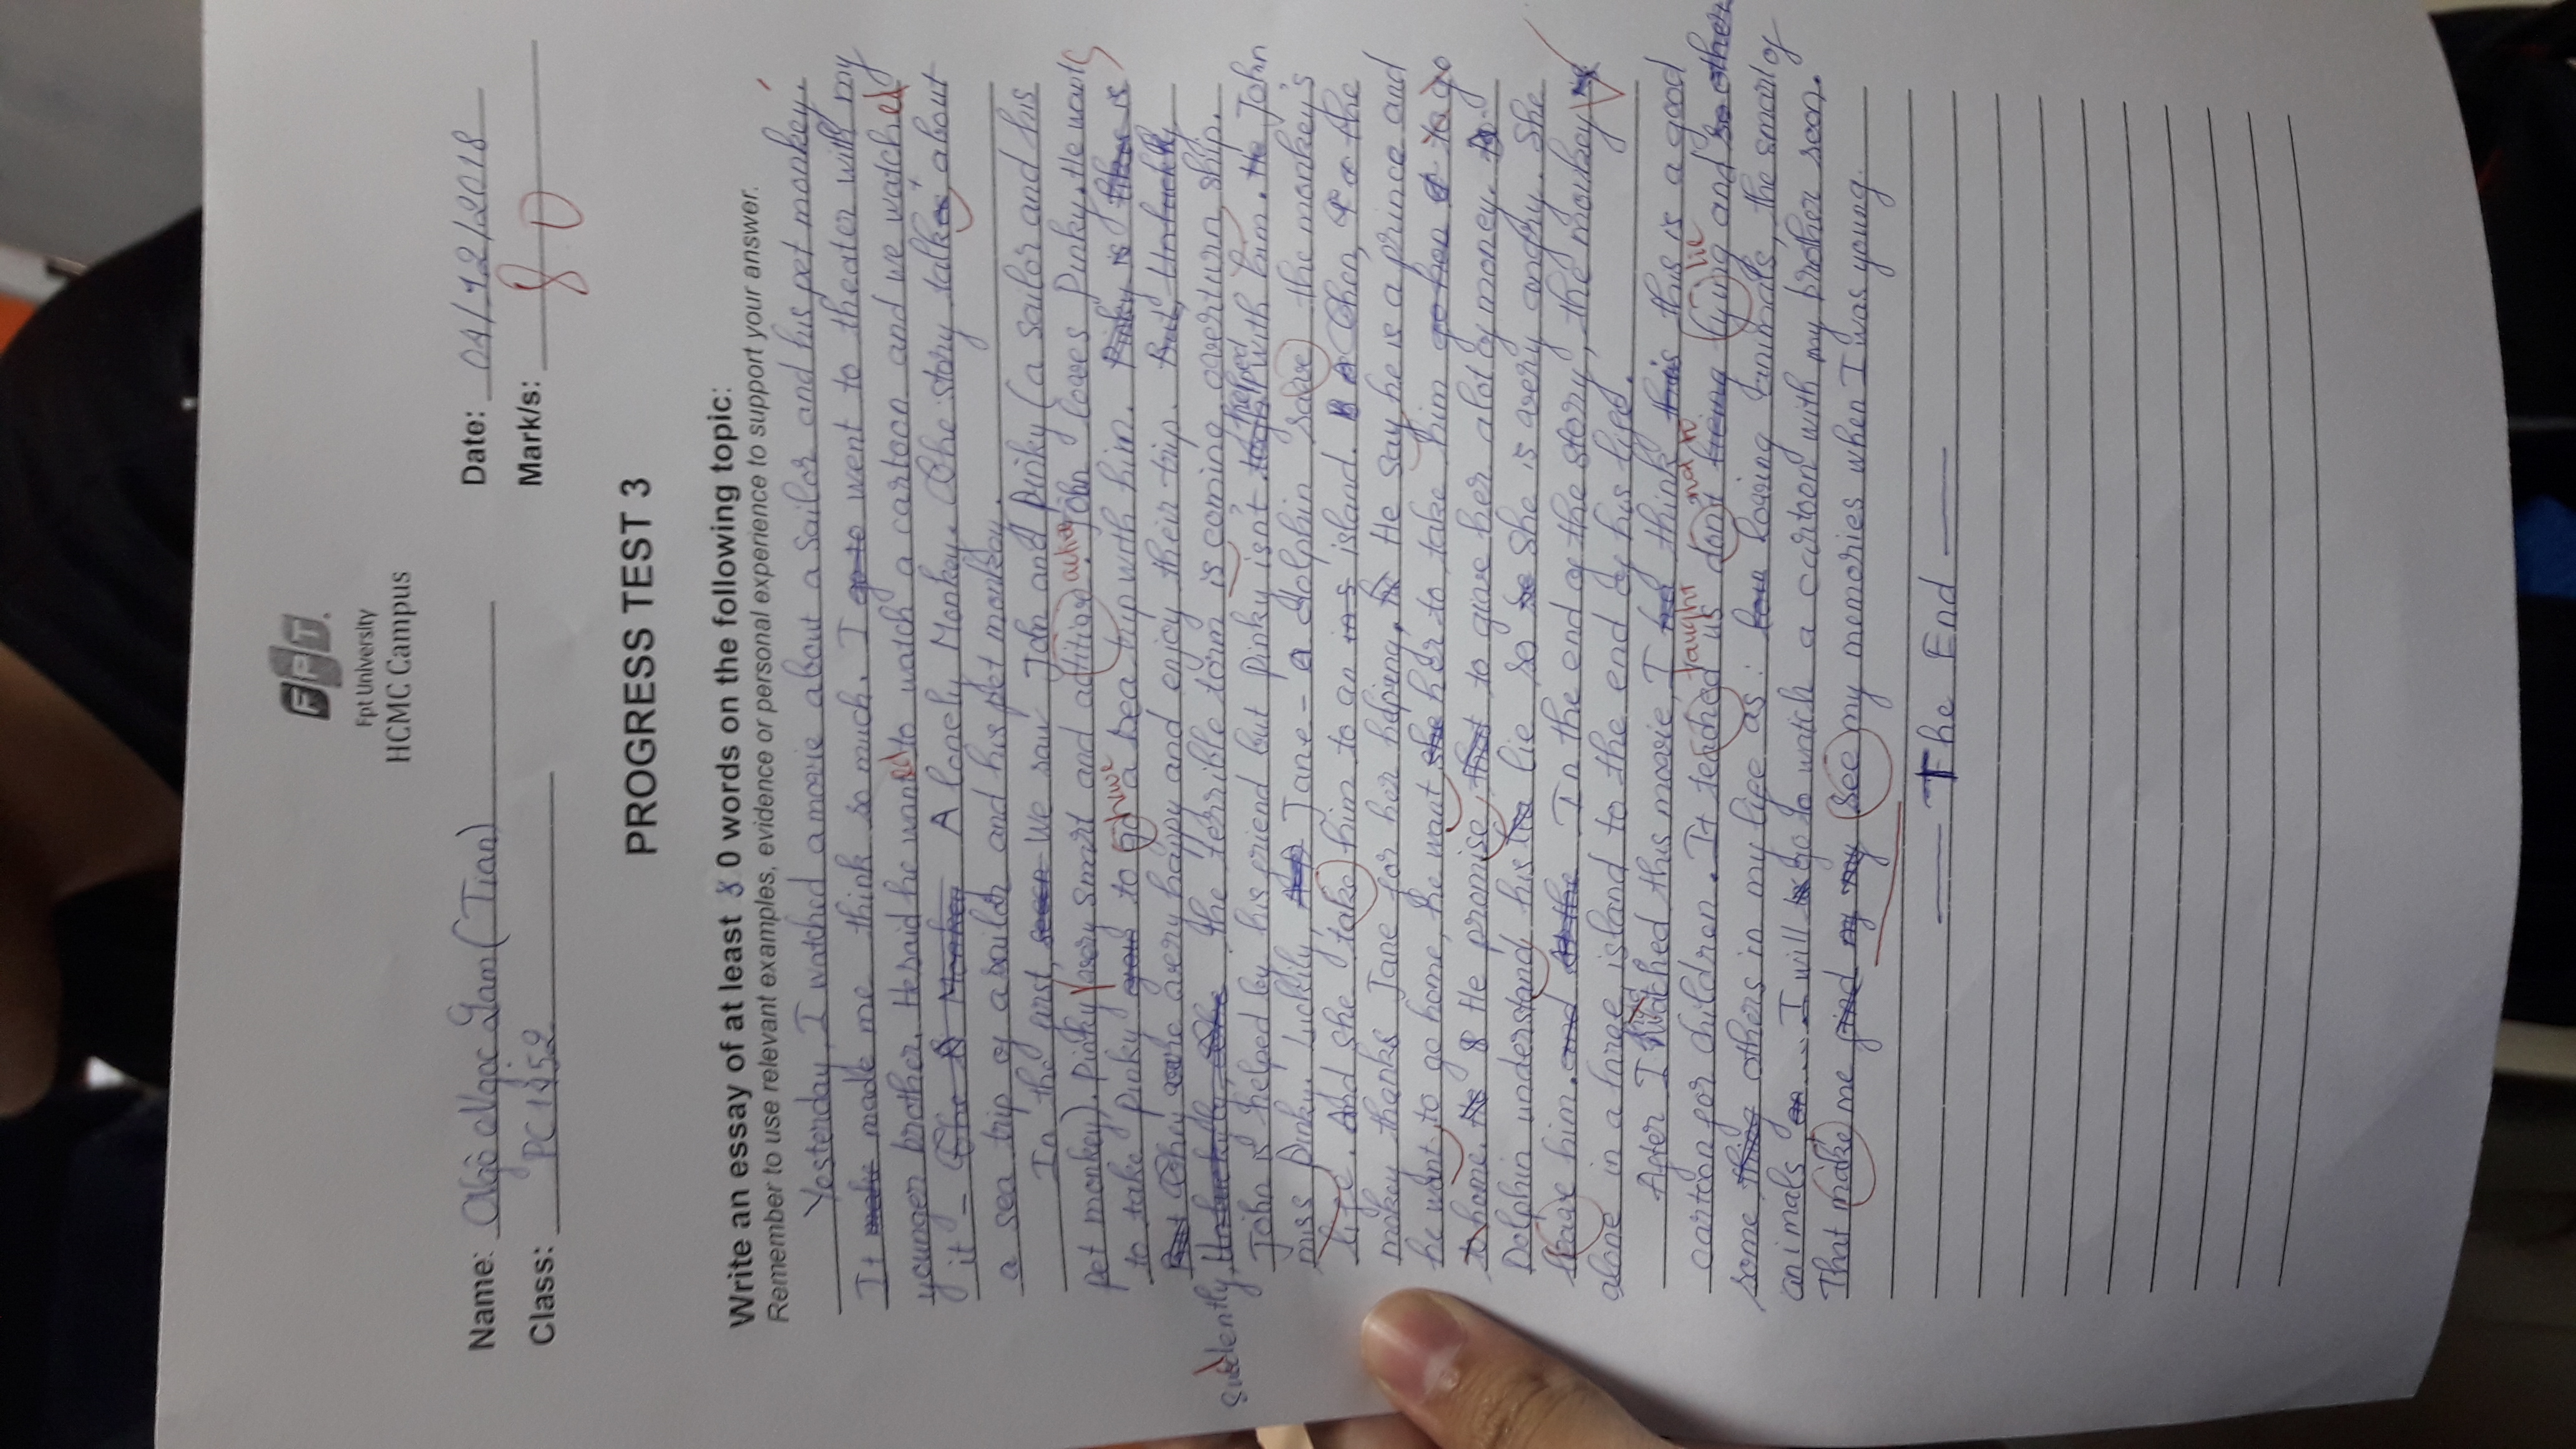 FPT.
Fpt University
HCMC Campus
Name: Ngô Ngọc Lam (Tian)
Date: 04/12/2018
Class: PC1252
Mark/s: 80
PROGRESS TEST 3
Write an essay of at least 80 words on the following topic:
Remember to use relevant examples, evidence or personal experience to support your answer.
Yesterday, I watched a movie about a sailor and his pet monkey.
It make made me think so much. I go to went to theater with my
younger brother. He said he wanted to watch a cartoon and we watched
it - The Monkey A lonely Monkey. The story talkes about
a sea trip of a sailor and his pet monkey.
In the first, We saw John and Pinky (a sailor and his
pet monkey). Pinky very smart and actitive active. John loves Pinky. He wants
to take Pinky to go have a sea trip with him. Pinky is is
But They are very happy and enjoy their trip. But, Unluckily
Suddently, Unluckily, The the terrible torm is coming, overturn ship.
John is helped by his friend but Pinky isn't helped with him. He John
miss Pinky. Luckily, Jane - a dolphin save the monkey's
life. And she take him to an island. Then, the
mokey thanks Jane for her helping, He say he is a prince and
he want to go home, he want she her to take him to go
to home. He He promise that to give her alot of money.
Dolphin understand his lie so she is very angry. She
leave him. and At the In the end of the story, the monkey
alone in a large island to the end of his life.
After I watched this movie, I think this this is a good
cartoon for children. It teached taught us don't not to being lying lie and so other
some thing others in my life as: loving animals, the smart of
animals ... I will go to watch a cartoon with my brother soon.
That make me find my my see my memories when I was young.
The End